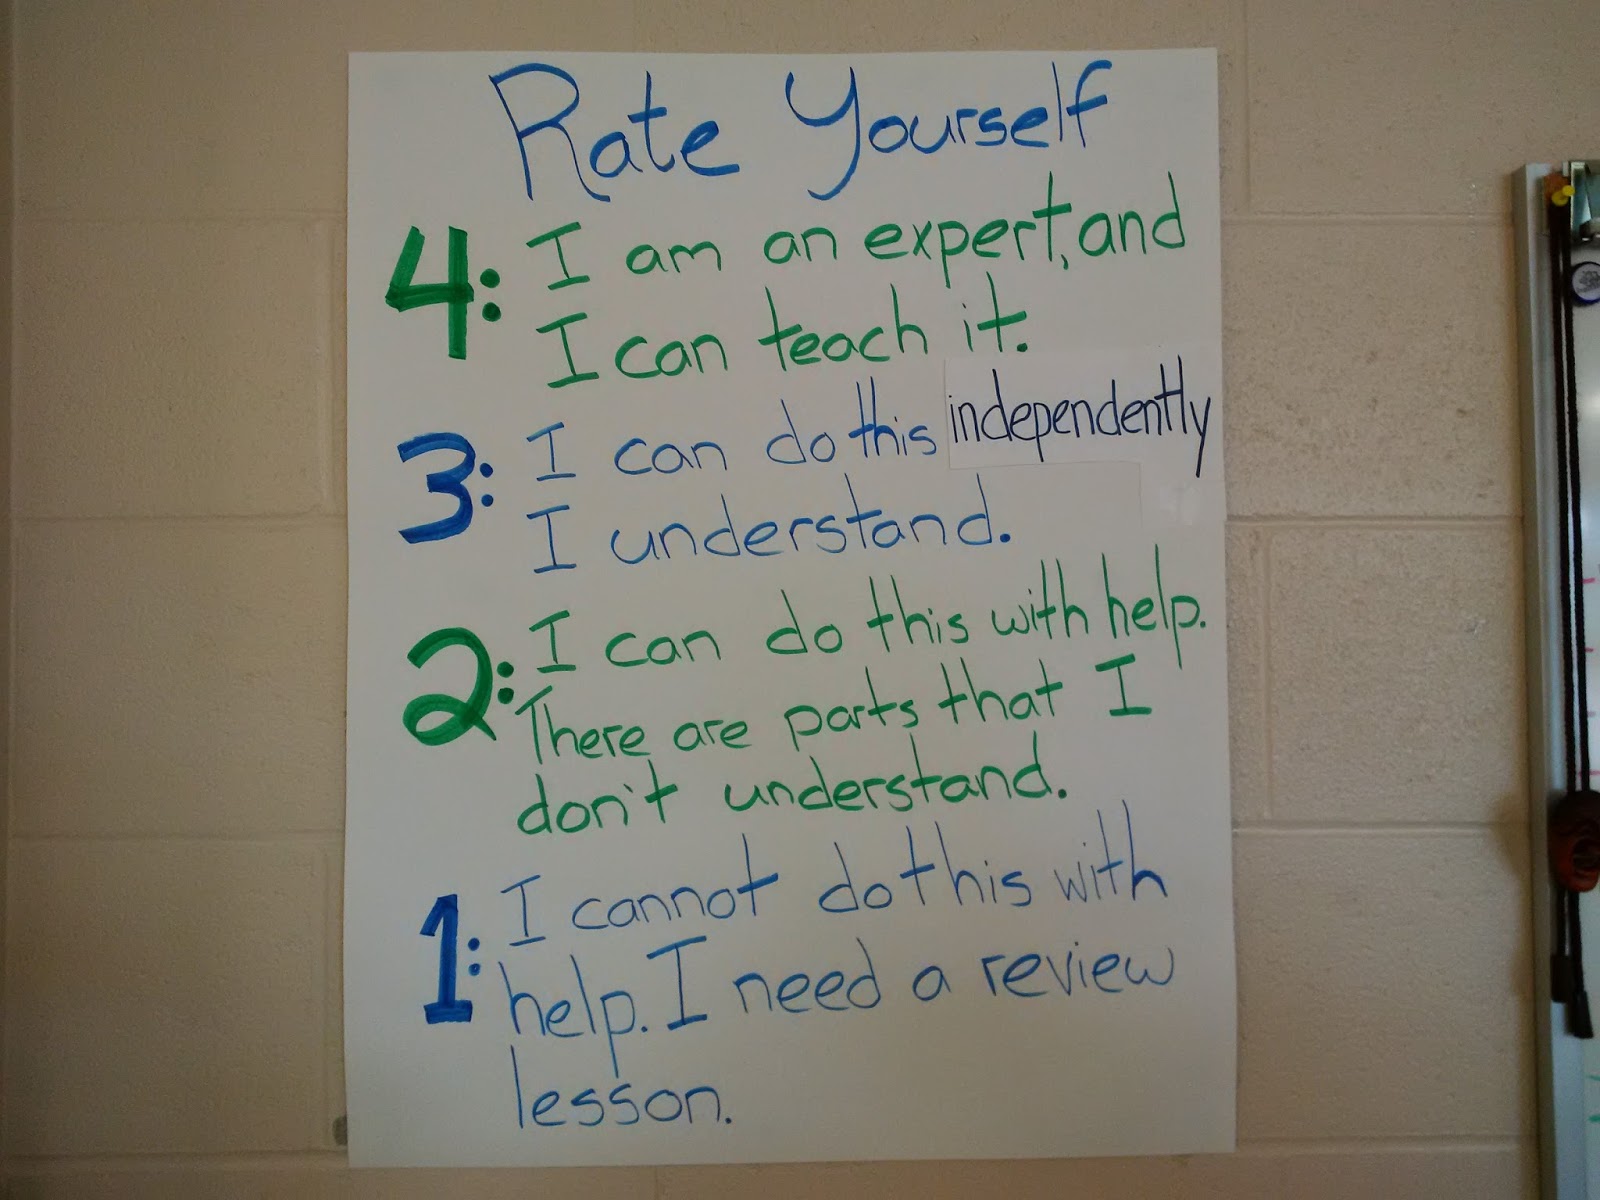 Rate Yourself
4: I am an expert, and
I can teach it.
3: I can do this independently
I understand.
2: I can do this with help.
There are parts that I
don't understand.
1: I cannot do this with
help. I need a review
lesson.